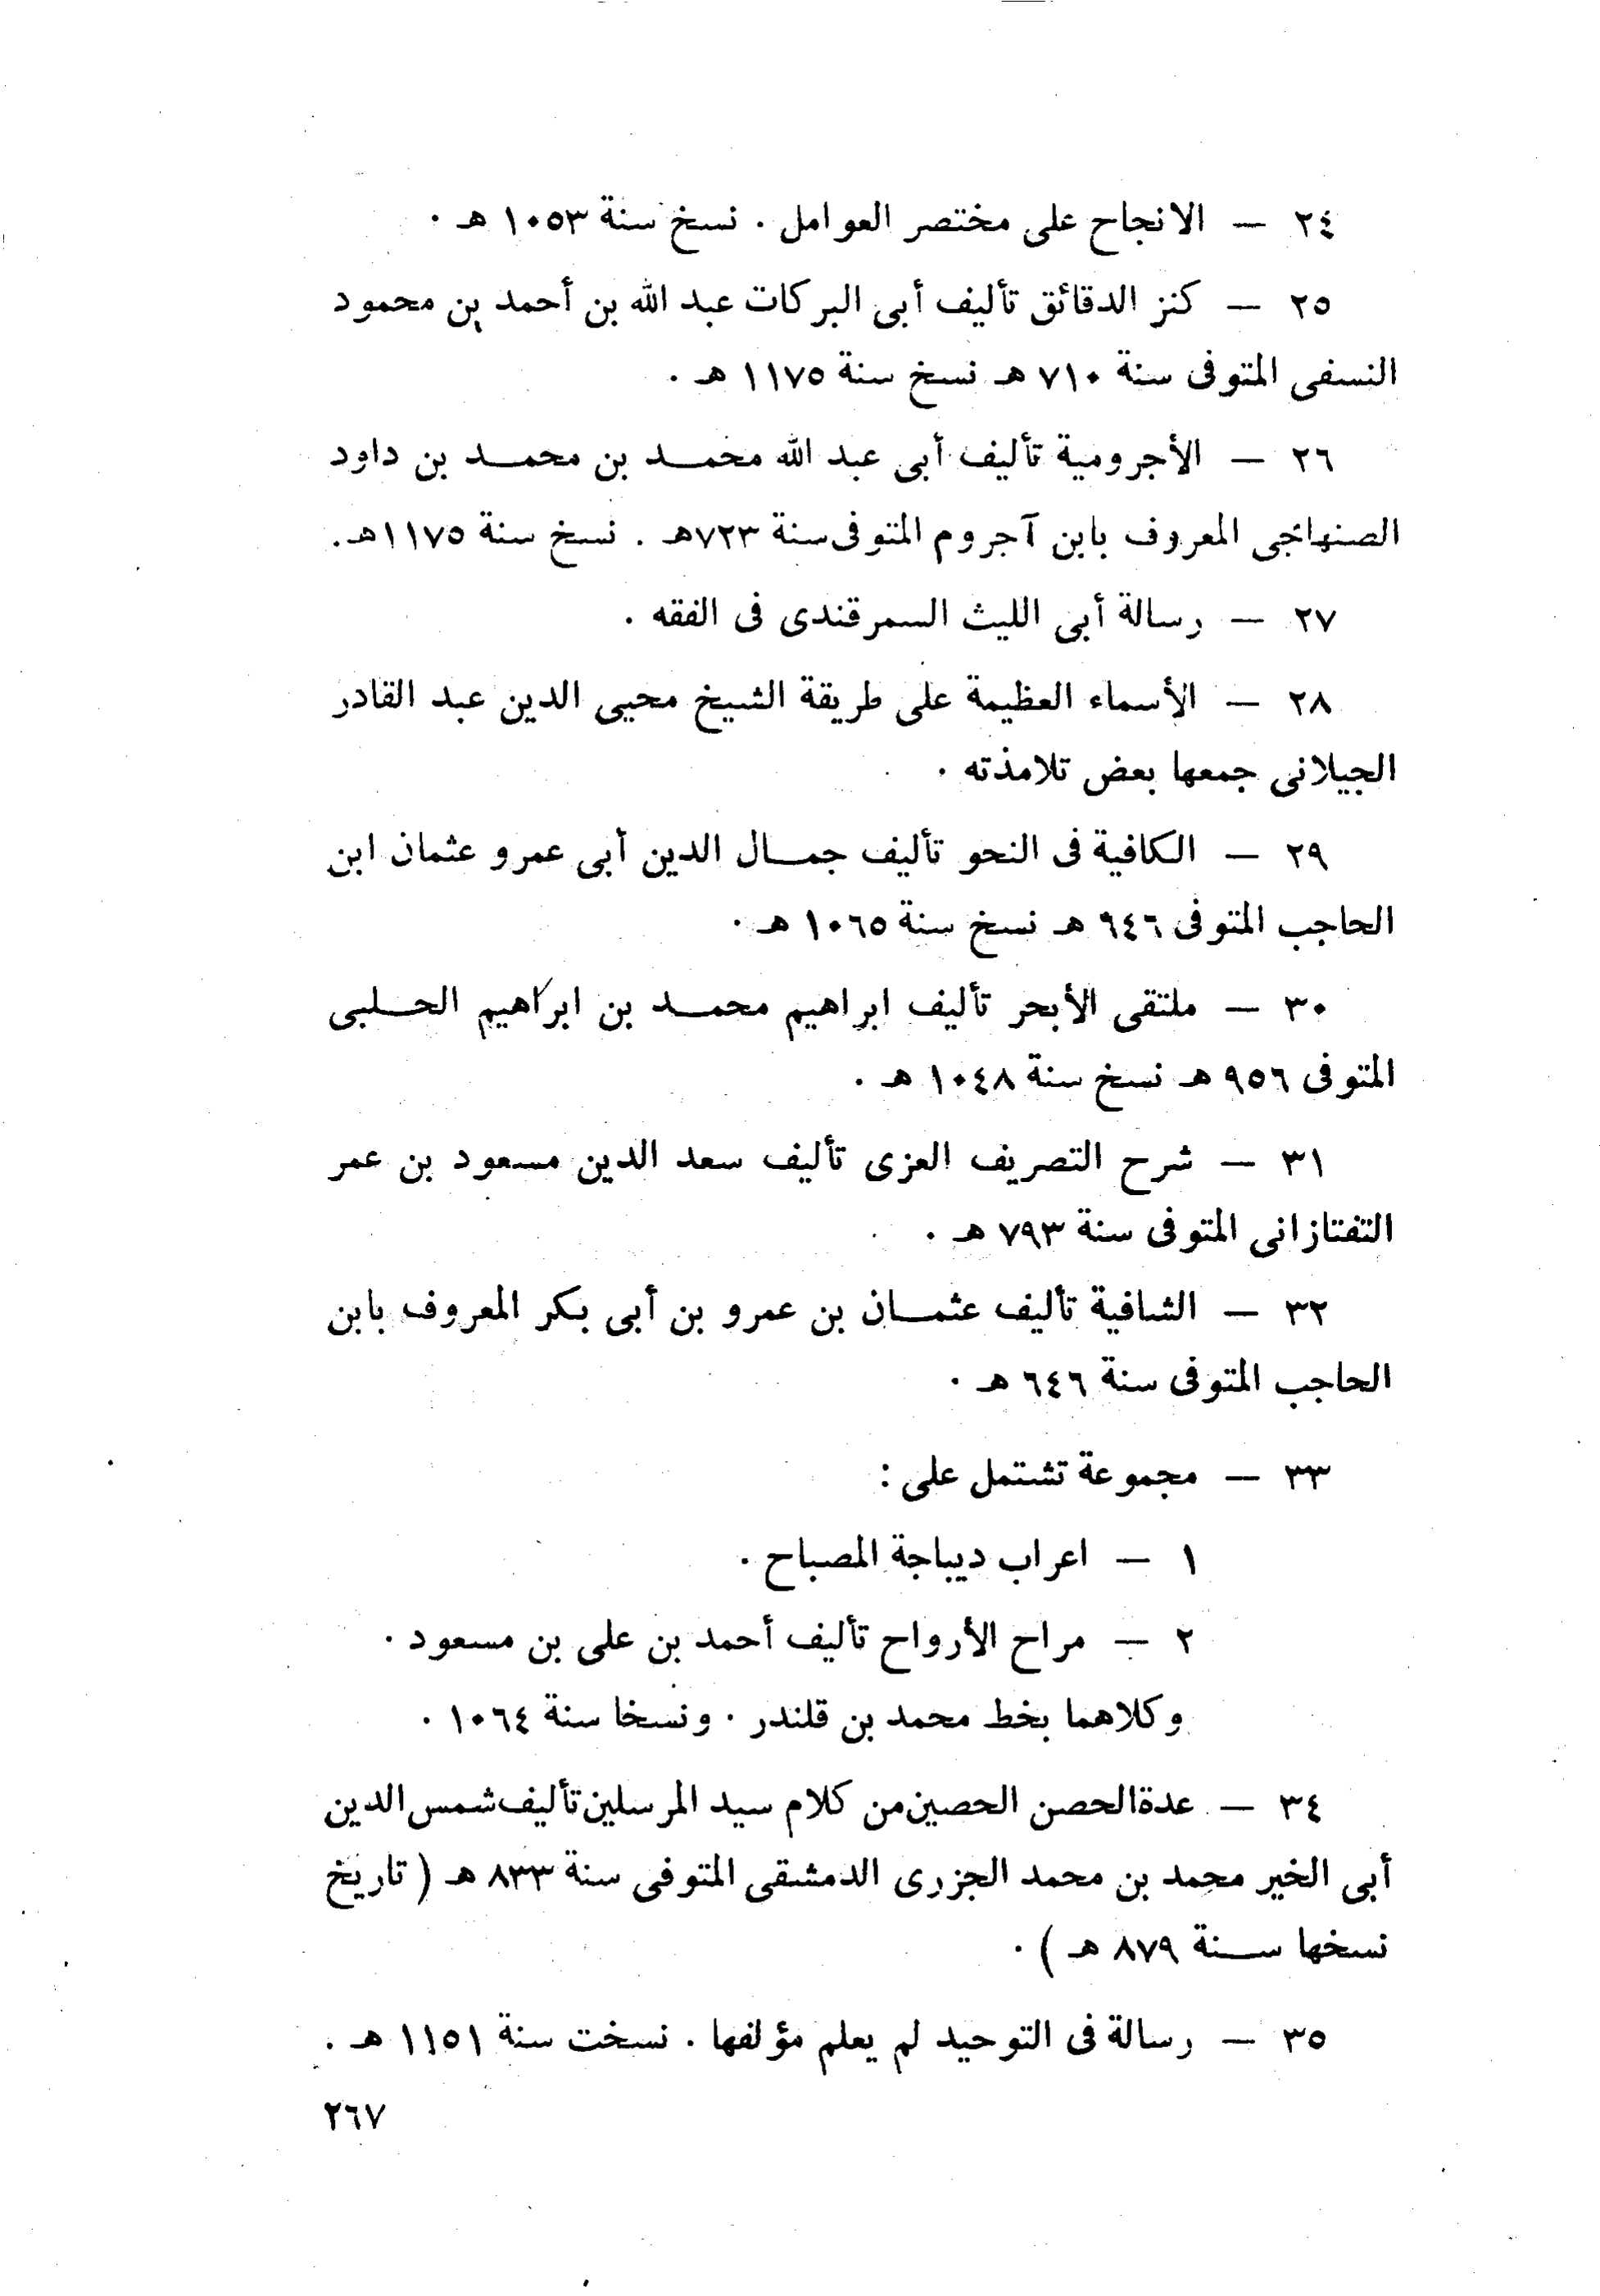 ٢٤ — الانجاح على مختصر العوامل . نسخ سنة ١٠٥٣ هـ .
٢٥ — كنز الدقائق تأليف أبى البركات عبد الله بن أحمد بن محمود
النسفى المتوفى سنة ٧١٠ هـ نسخ سنة ١١٧٥ هـ .
٢٦ — الأجرومية تأليف أبى عبد الله محمــد بن محمــد بن داود
الصنهاجى المعروف بابن آجروم المتوفى سنة ٧٢٣هـ . نسخ سنة ١١٧٥هـ.
٢٧ — رسالة أبى الليث السمرقندى فى الفقه .
٢٨ — الأسماء العظيمة على طريقة الشيخ محيى الدين عبد القادر
الجيلانى جمعها بعض تلامذته .
٢٩ — الكافية فى النحو تأليف جمــال الدين أبى عمرو عثمان ابن
الحاجب المتوفى ٩٤٦ هـ نسخ سنة ١٠٦٥ هـ .
٣٠ — ملتقى الأبحر تأليف ابراهيم محمــد بن ابراهيم الحــلبى
المتوفى ٩٥٦ هـ نسخ سنة ١٠٤٨ هـ .
٣١ — شرح التصريف العزى تأليف سعد الدين مسعود بن عمر
التفتازانى المتوفى سنة ٧٩٣ هـ .
٣٢ — الشافية تأليف عثمــان بن عمرو بن أبى بكر المعروف بابن
الحاجب المتوفى سنة ٦٤٦ هـ .
٣٣ — مجموعة تشتمل على :
١ — اعراب ديباجة المصباح .
٢ — مراح الأرواح تأليف أحمد بن على بن مسعود .
وكلاهما بخط محمد بن قلندر . ونسخا سنة ١٠٦٤ .
٣٤ — عدة الحصن الحصين من كلام سيد المرسلين تأليف شمس الدين
أبى الخير محمد بن محمد الجزرى الدمشقى المتوفى سنة ٨٣٣ هـ ( تاريخ
نسخها ســنة ٨٧٩ هـ ) .
٣٥ — رسالة فى التوحيد لم يعلم مؤلفها . نسخت سنة ١١٥١ هـ .
٢٦٧